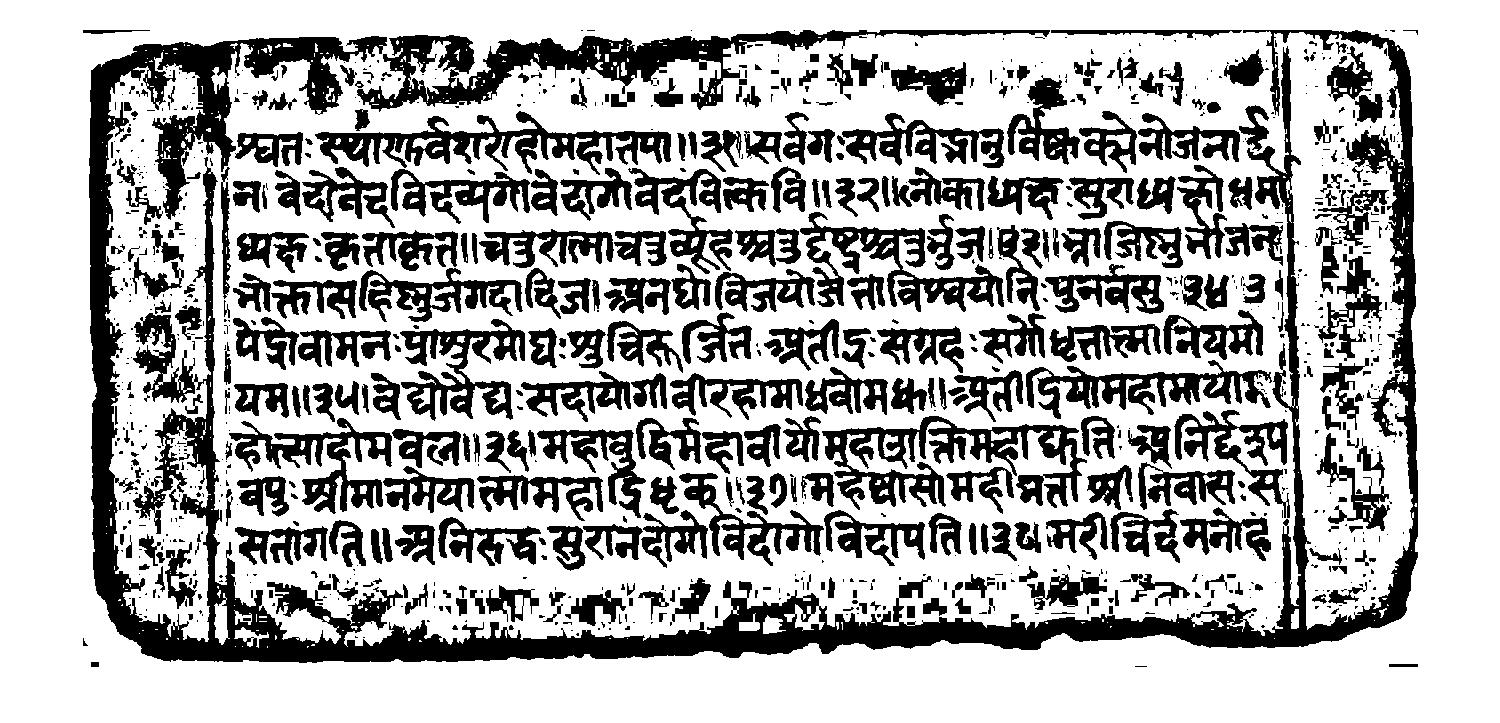 श्वतः स्थाणुर्वरारोहो महातपा॥३१॥ सर्वगः सर्वविद्भानुर्विष्वक्सेनो जनार्द्द
न। वेदो वेदविदव्यंगो वेदांगो वेदवित्कवि॥३२॥ लोकाध्यक्षः सुराध्यक्षो धर्मा
ध्यक्षः कृताकृत॥ चतुरात्मा चतुर्व्यूहश्चतुर्द्दंष्ट्रश्चतुर्भुज॥३३॥ भ्राजिष्णुर्भोजनं
भोक्ता सहिष्णुर्जगदादिज। अनघो विजयो जेता विश्वयोनिः पुनर्वसु ३४ उ
पेंद्रो वामनः प्रांशुरमोघः शुचिरूर्जित अतींद्रः संग्रहः सर्गो धृतात्मा नियमो
यम॥३५। वेद्यो वैद्यः सदायोगी वीरहा माधवो मधु॥ अतींद्रियो महामायो म
होत्साहो महाबल॥३६। महाबुद्धिर्महावीर्यो महाशक्तिर्महाद्युति अनिर्द्देश्य
वपुः श्रीमानमेयात्मा महाद्रिधृक्॥३७॥ महेष्वासो महीभर्त्ता श्रीनिवासः स
सतांगति॥ अनिरुद्धः सुरानंदो गोविंदो गोविदांपति॥३८ मरीचिर्दमनो हं